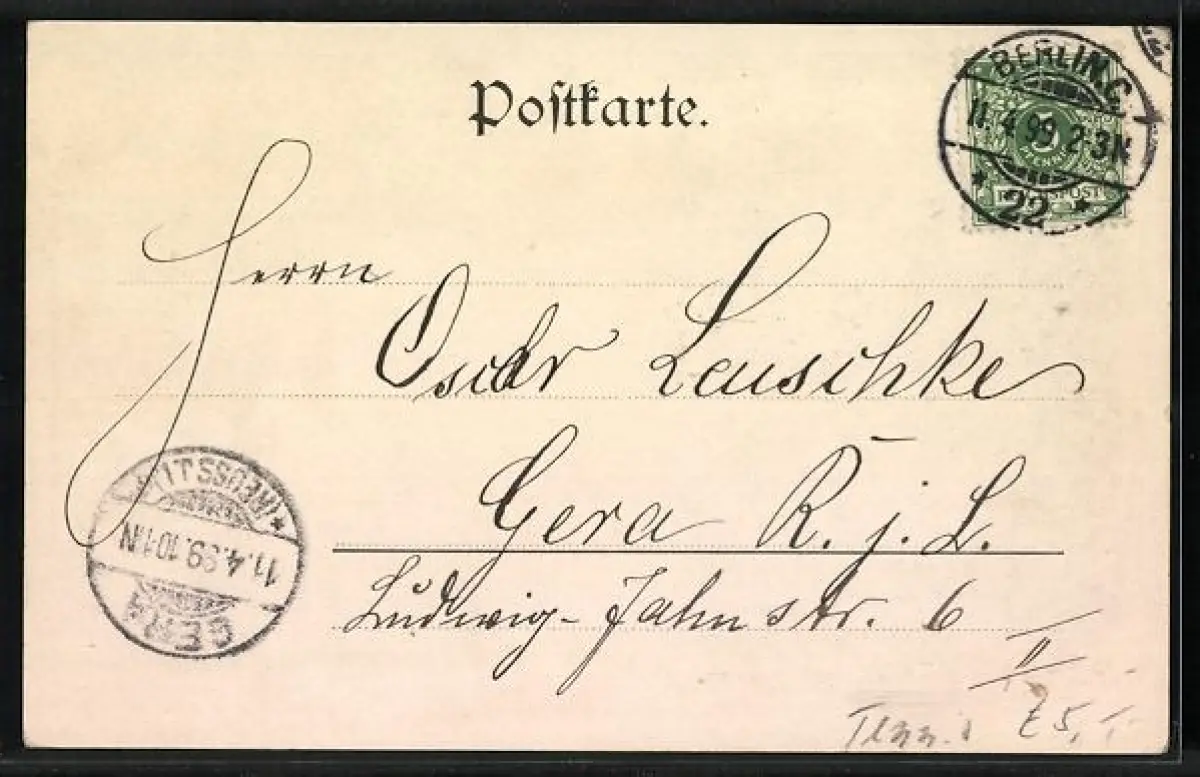 Postkarte.
BERLIN.C.
11.4.99.2-3N
* 22 *
5
PFENNIG
REICHSPOST
Herrn
Oscar Leuschke
Gera R. j. L.
Ludwig-Jahnstr. 6
II
GERA
11.4.99.10-11N